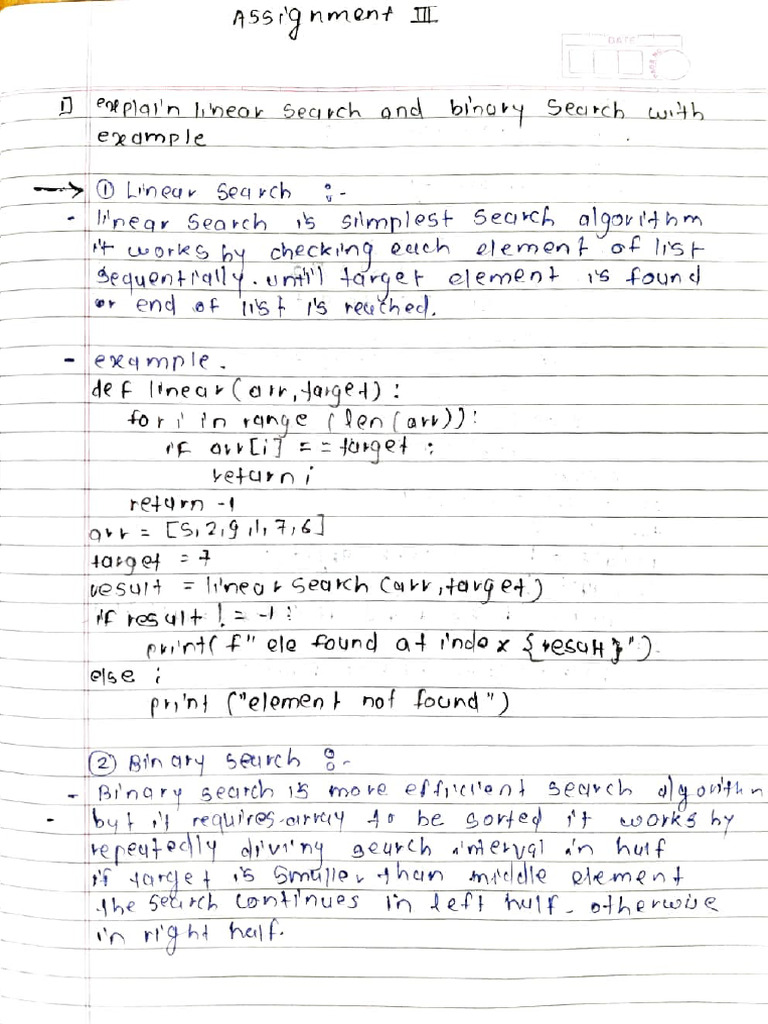 Assignment III
DATE
1] explain linear search and binary search with
example
→ ① Linear search :-
- linear search is silmplest search algorithm
it works by checking each element of list
sequentially. until target element is found
or end of list is reached.
- example.
def linear (arr, target) :
for i in range (len (arr)) :
if arr[i] == target :
return i
return -1
arr = [5, 2, 9, 1, 7, 6]
target = 7
result = linear search (arr, target)
if result != -1 :
print( f" ele found at index {result}").
else :
print ("element not found")
② Binary search :-
- Binary search is more efficient search algorithm
- but it requires array to be sorted it works by
repeatedly diving search interval in half
if target is smaller than middle element
the search continues in left half. otherwise
in right half.